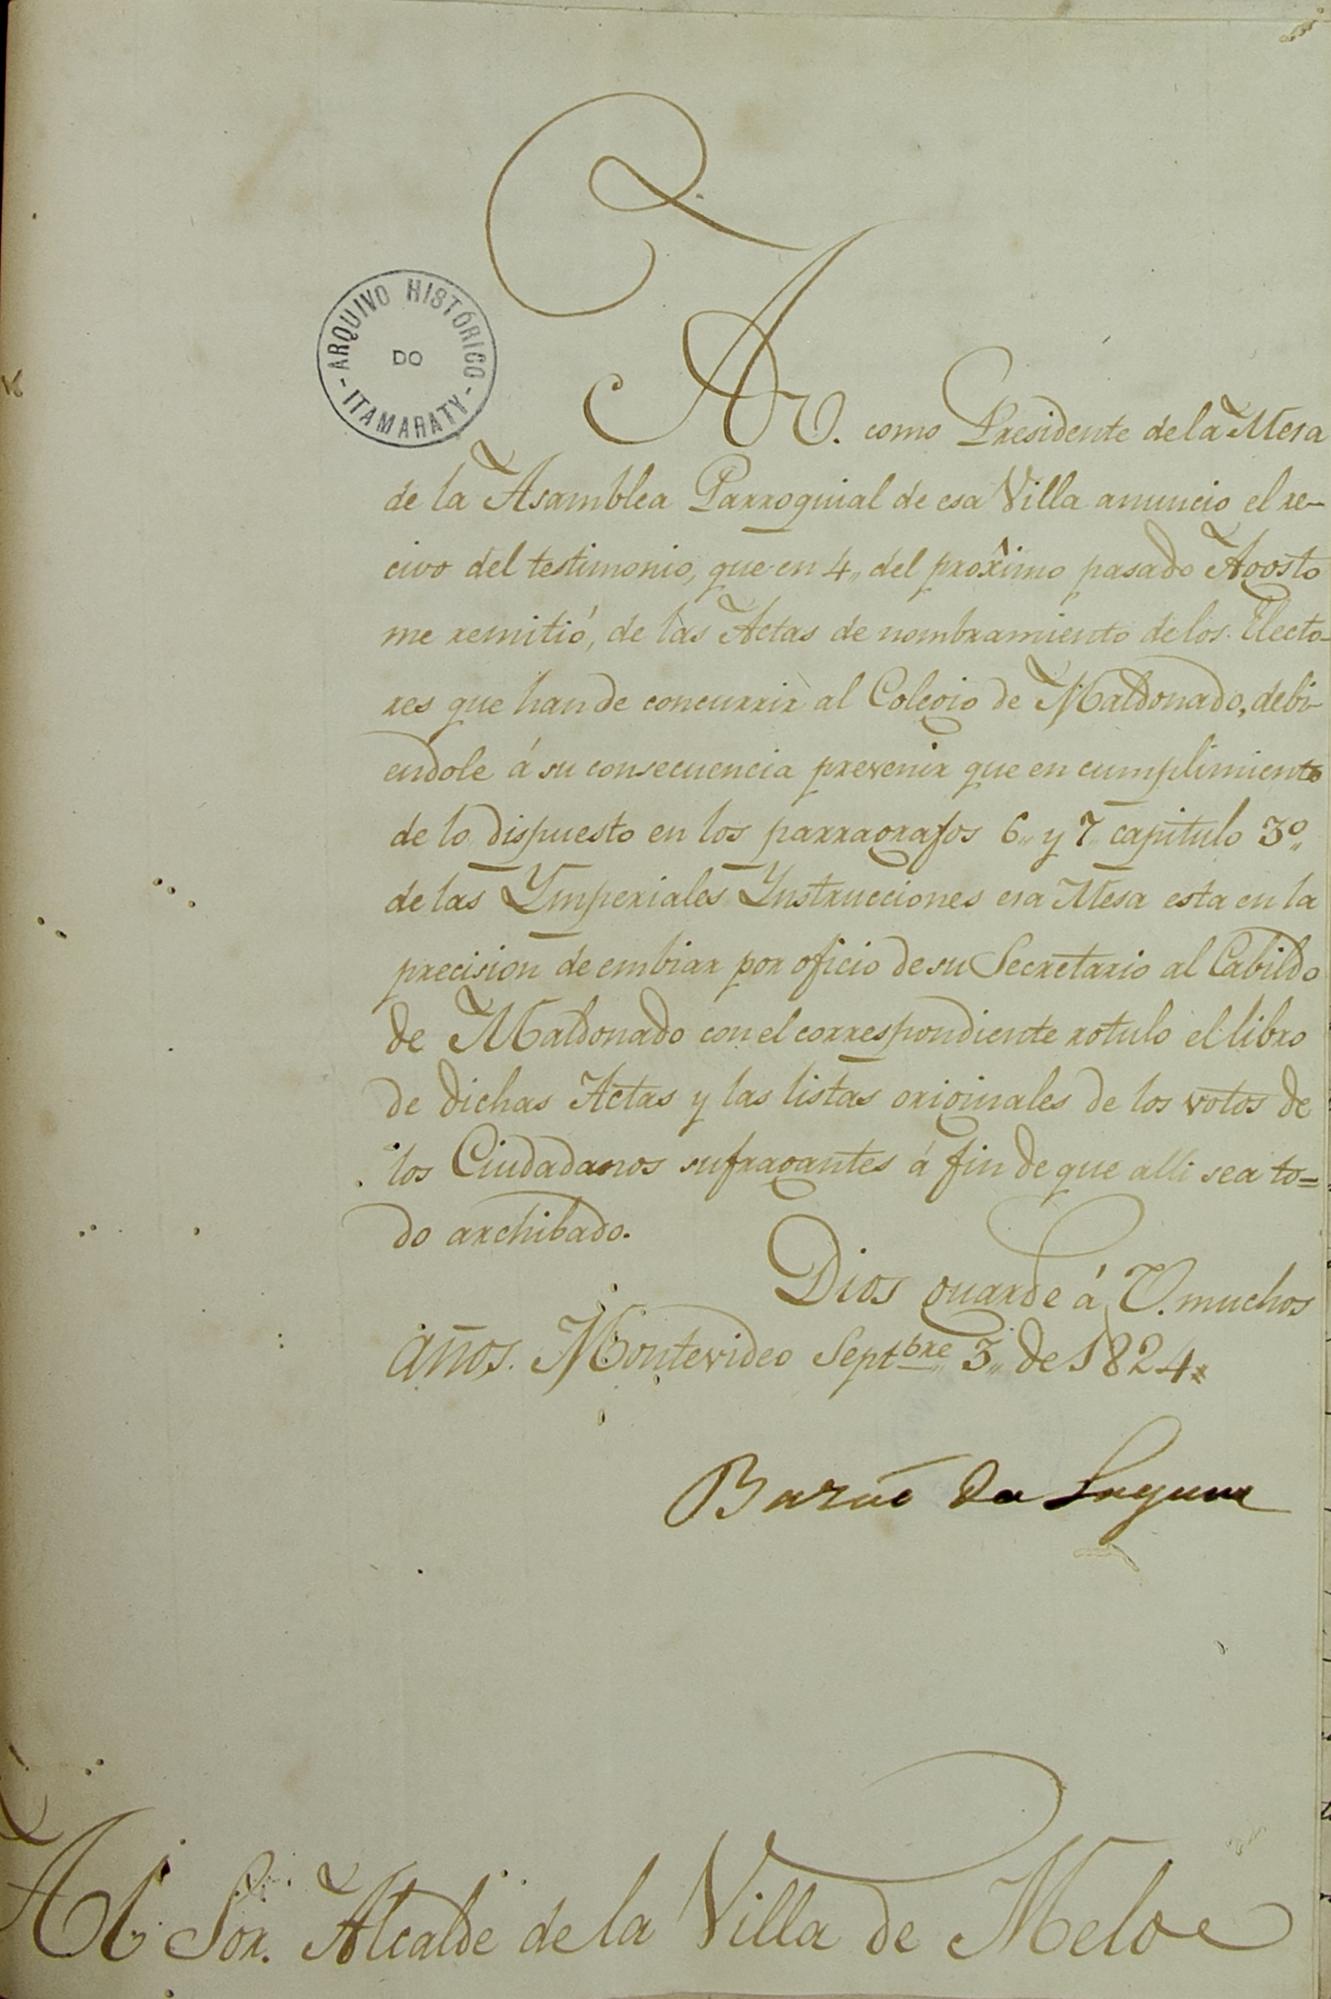 ARQUIVO HISTÓRICO
DO
- ITAMARATY -
A V. como Presidente de la Mesa
de la Asamblea Parroquial de esa Villa anuncio el re-
civo del testimonio, que en 4,, del proximo pasado Agosto
me remitió, de las Actas de nombramiento de los Electo-
res que han de concurrir al Colegio de Maldonado, debi-
endole á su consecuencia prevenir que en cumplimiento
de lo dispuesto en los parragrafos 6,, y 7,, capitulo 3º,,
de las Ymperiales Ynstrucciones esa Mesa esta en la
precision de embiar por oficio de su Secretario al Cabildo
de Maldonado con el correspondiente rotulo el libro
de dichas Actas y las listas originales de los votos de
los Ciudadanos sufragantes á fin de que alli sea to=
do archibado.
Dios guarde á V. muchos
años. Montevideo Septbre 3,, de 1824.
Barão da Laguna
Al Sor. Alcalde de la Villa de Melo